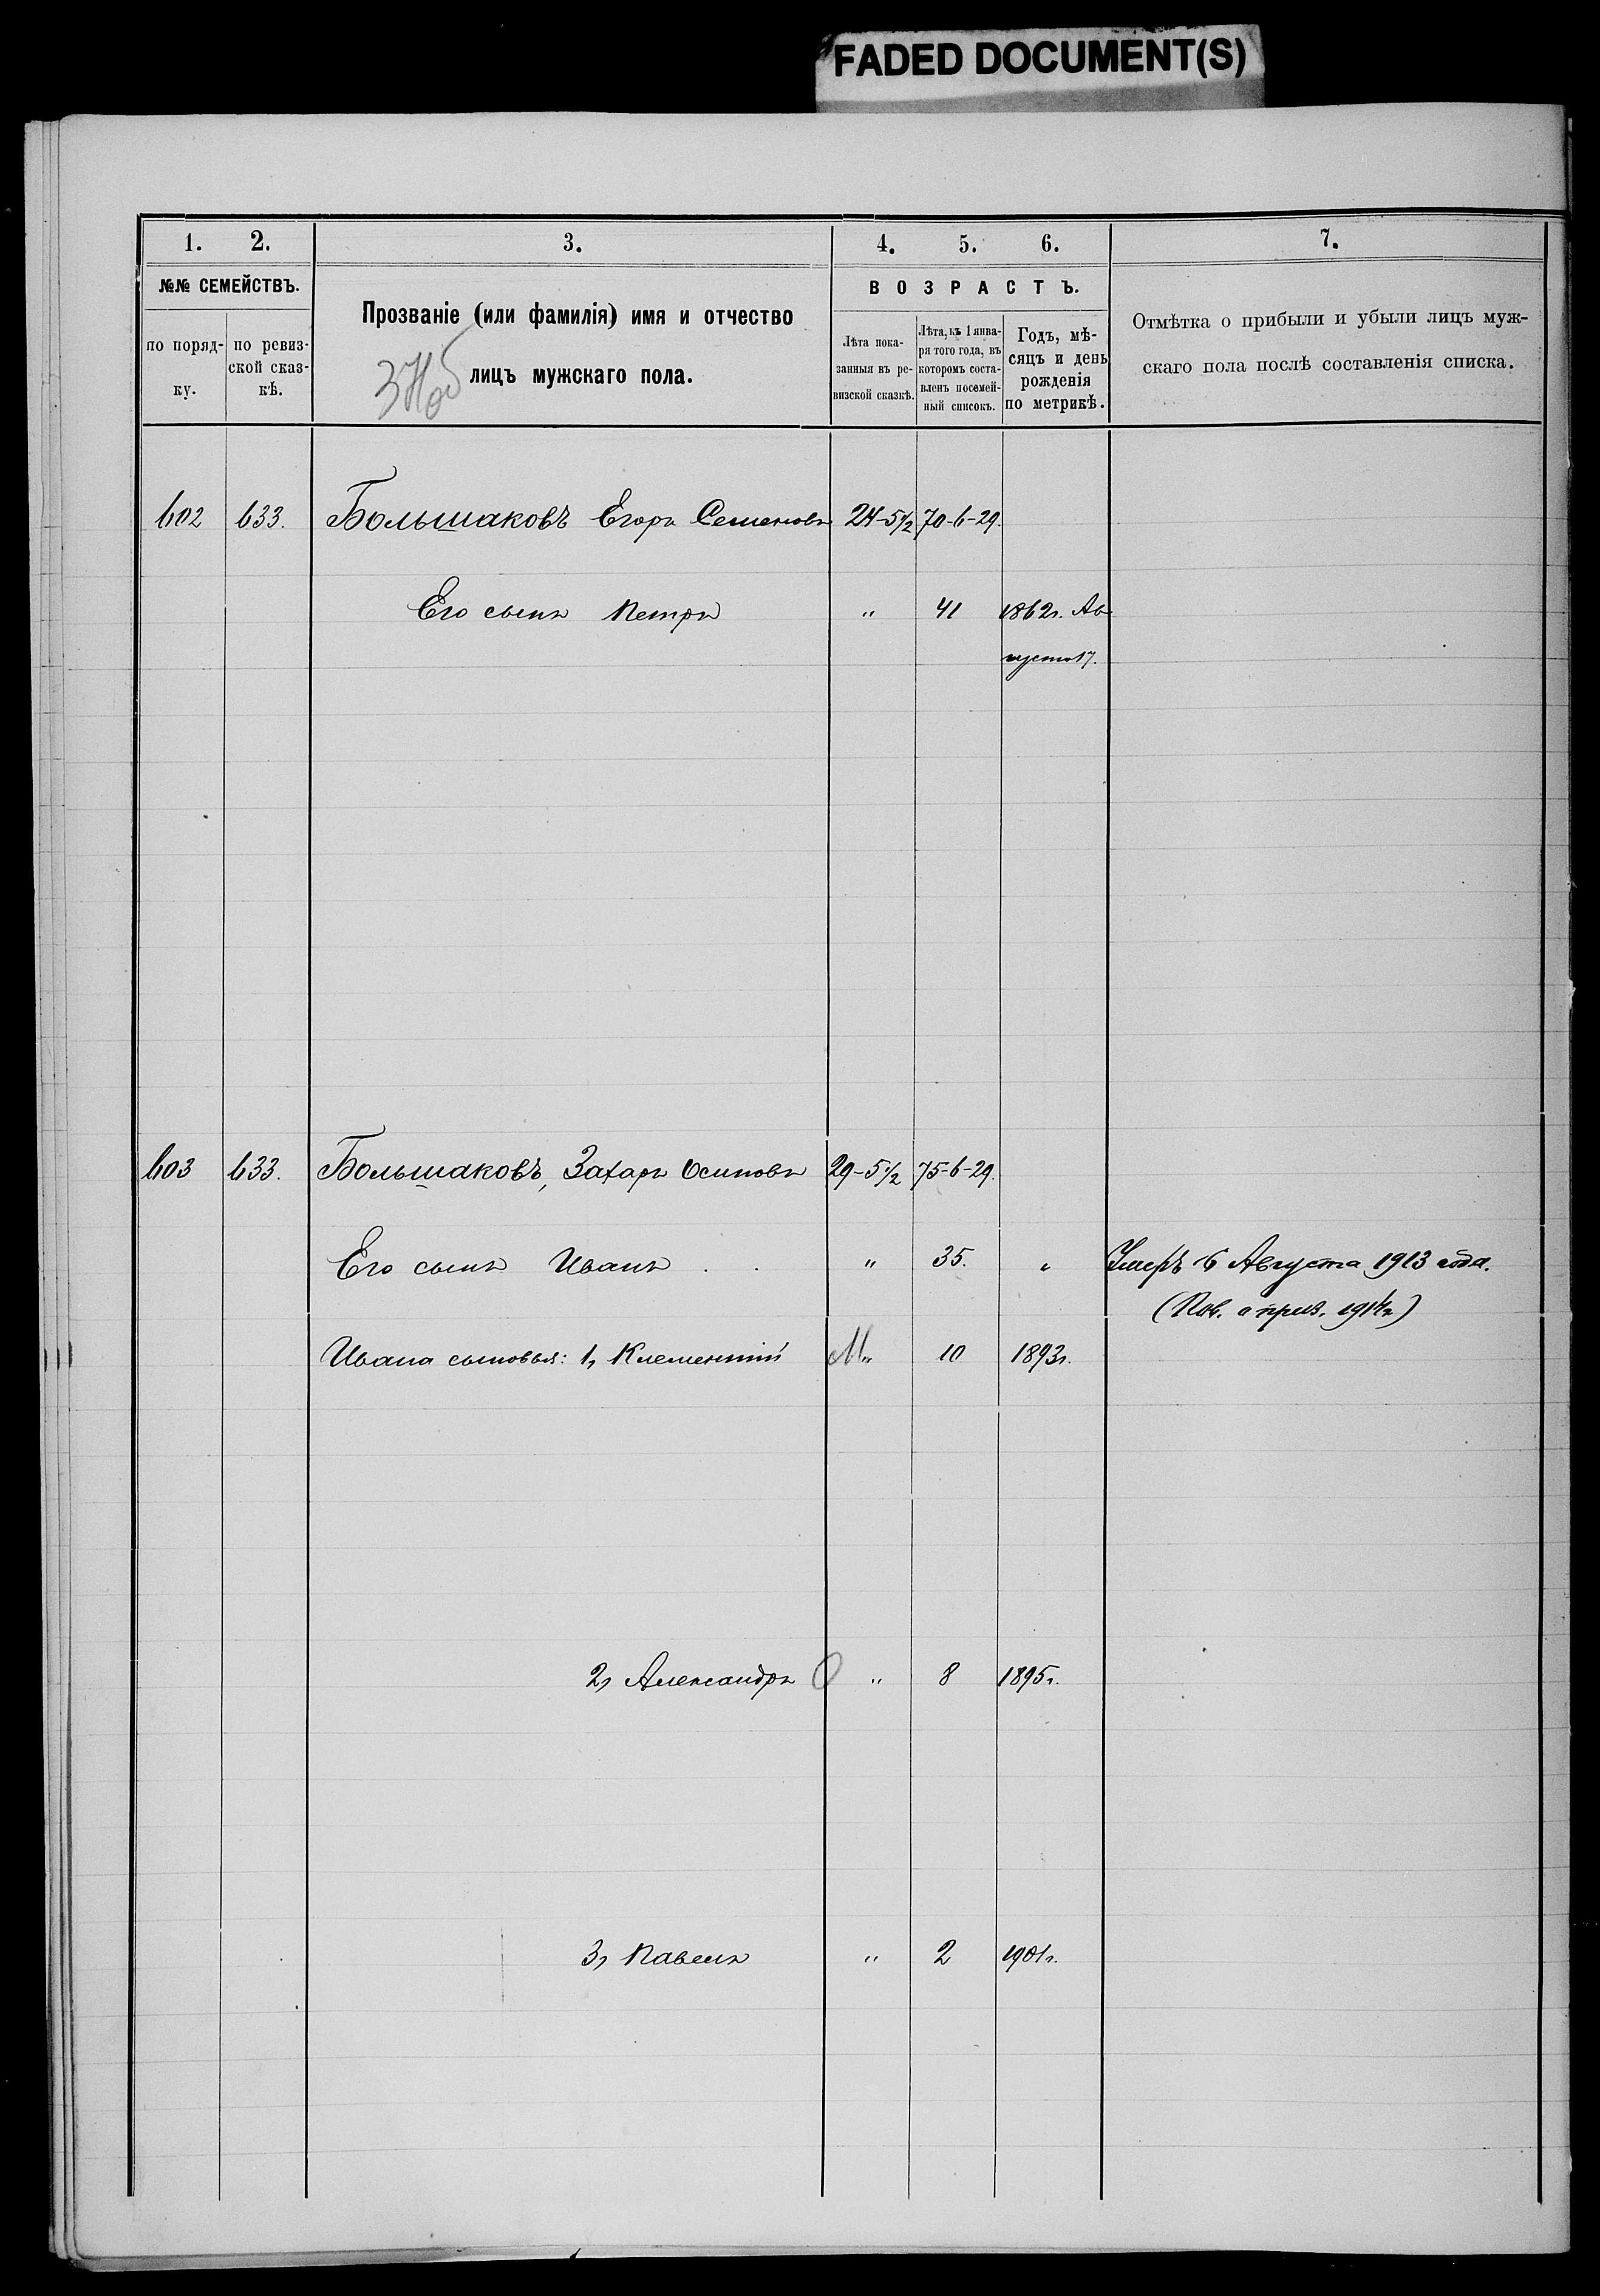 FADED DOCUMENT(S)
1. 2. 3. 4. 5. 6. 7.
№№ СЕМЕЙСТВЪ.
по поряд-
ку.
по ревиз-
ской сказ-
кѣ.
Прозваніе (или фамилія) имя и отчество
лицъ мужскаго пола.
ВОЗРАСТЪ.
Лѣта пока-
занныя въ ре-
визской сказкѣ.
Лѣта, къ 1 янва-
ря того года, въ
которомъ соста-
вленъ посемей-
ный списокъ.
Годъ, мѣ-
сяцъ и день
рожденія
по метрикѣ.
Отмѣтка о прибыли и убыли лицъ муж-
скаго пола послѣ составленія списка.
602 633. Большаковъ Егоръ Семеновъ 24-5½ 70-6-29.
Его сынъ Петръ " 41 1862г. Ав
густа 17.
603 633. Большаковъ, Захаръ Осиповъ 29-5½ 75-6-29.
Его сынъ Иванъ . . " 35. " Умеръ 6 Августа 1913 года.
(Пов. о приз. 1914г.)
Ивана сыновья: 1, Клементій М " 10 1893г.
2, Александръ О " 8 1895г.
3, Павелъ " 2 1901г.